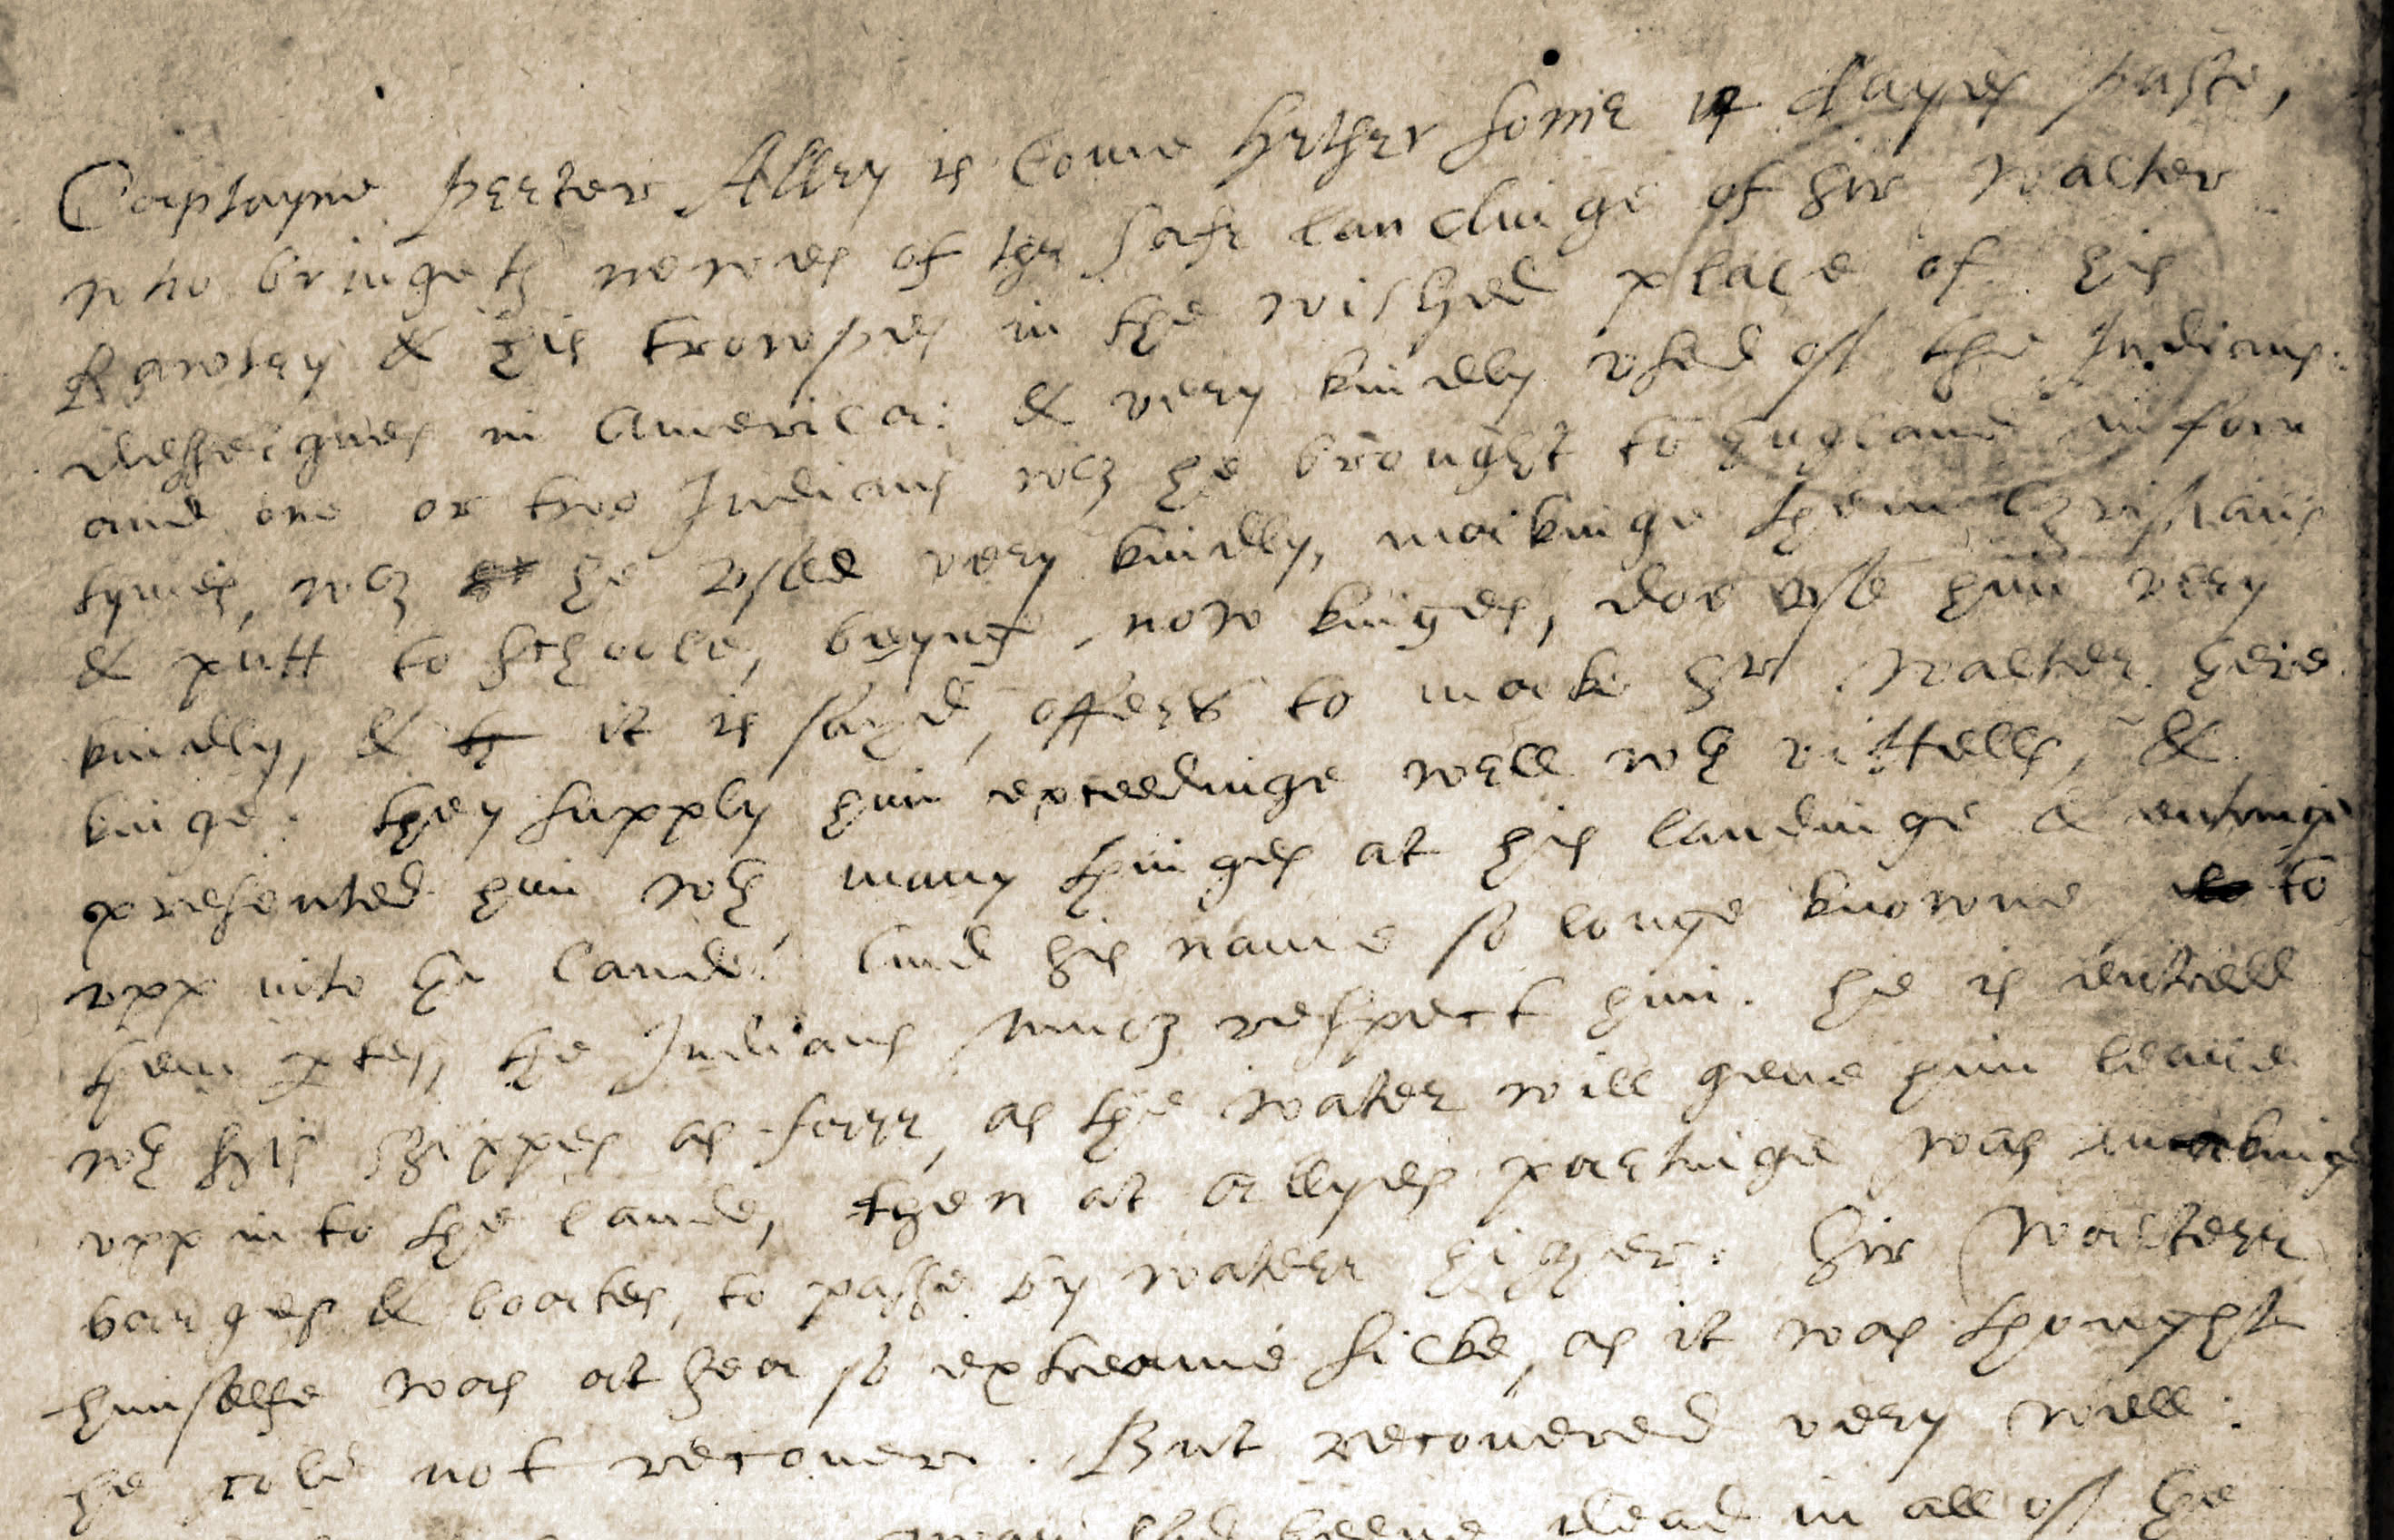 Captayne Peeter Alley is come hether some 14 dayes paste,
who bringeth newes of the safe landinge of Sir Walter
Rawley & his trowpes in the wished place of his
desseignes in America: & very kindly vsed of the Indians:
and one or two Indians wch he brought to England in form
tymes, wch he vsed very kindly, makinge them Christians
& putt to schoole, beynge now kinges, doe vse him very
kindly, & it is sayd, offers to make Sr Walter here
kinge: they supply him exceedinge well wth vittells, &
presented him wth many thinges at his landinge & entringe
vpp into the lande. And his name so longe knowne to
them ptes, the Indians much respect him. He is
wth his shippes as farr, as the water will geue him leaue
vpp into the lande, then at Allyes partinge was makinge
barges & boates, to passe by water higher. Sir Walterr
himselfe was at sea so extreame sicke, as it was thought
he cold not recouer. But recouered very well:
many had beene dead in all of the